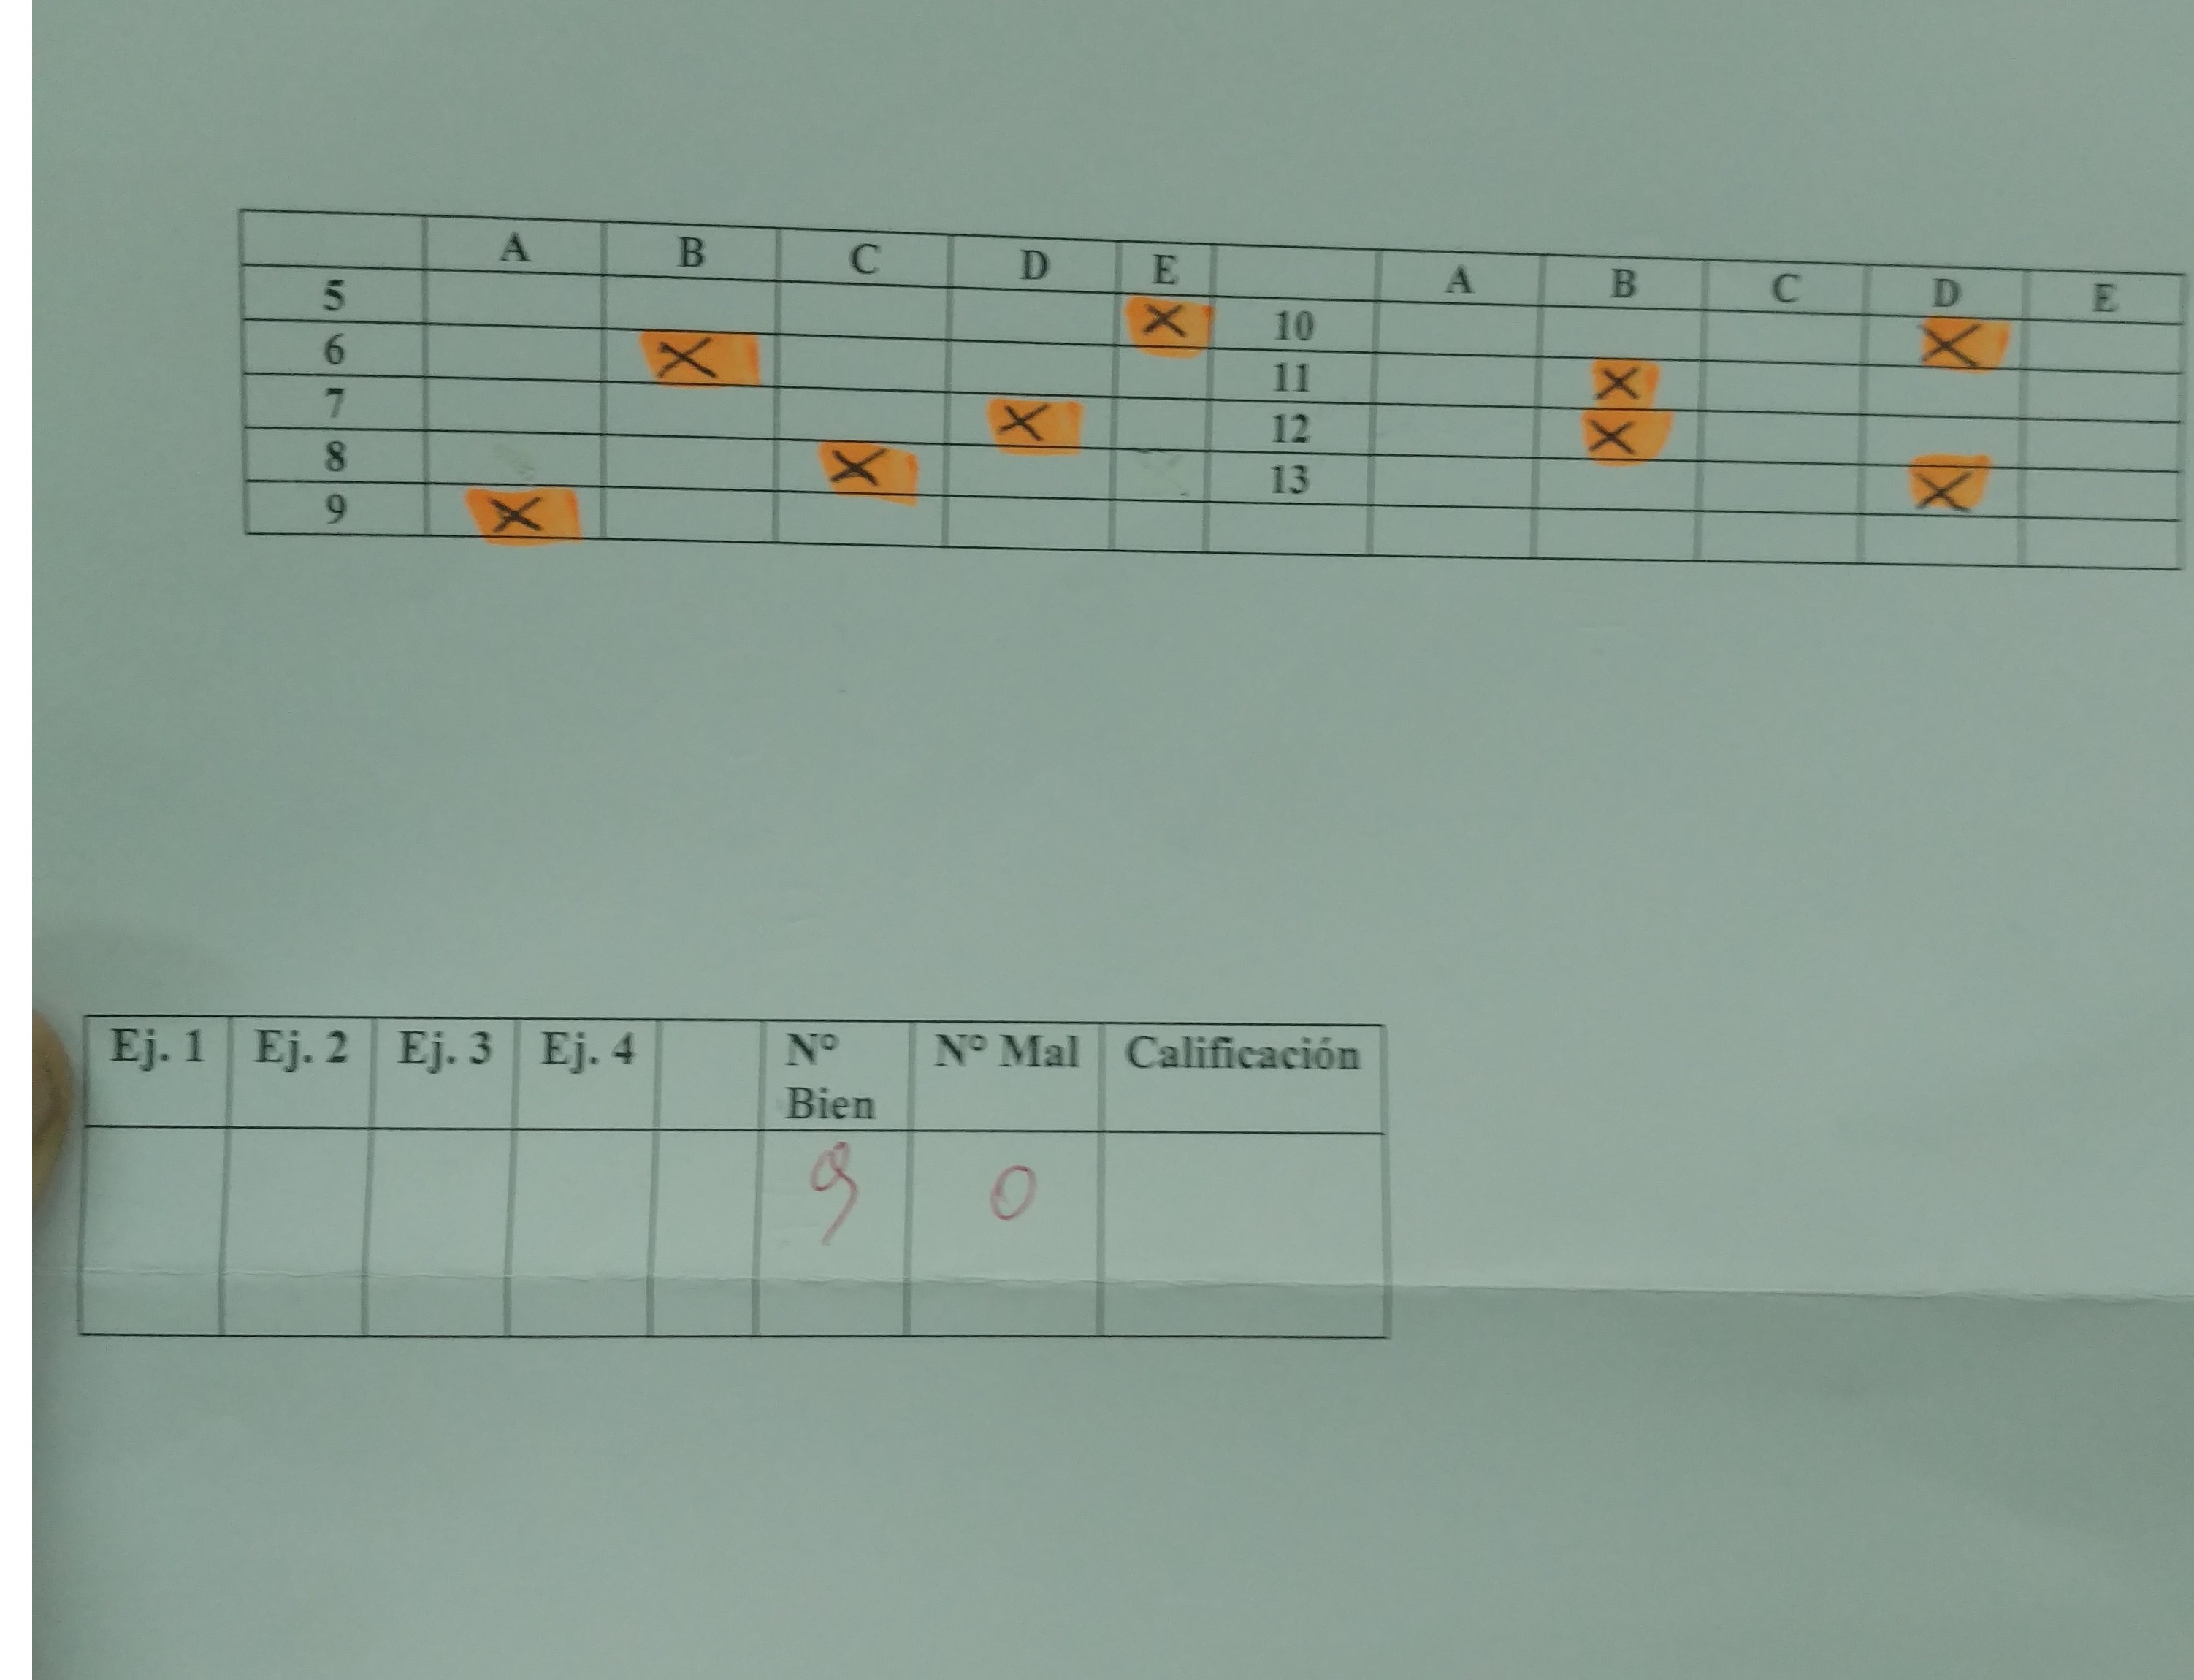 A B C D E A B C D E
5 X 10 X
6 X 11 X
7 X 12 X
8 X 13 X
9 X
Ej. 1 Ej. 2 Ej. 3 Ej. 4 Nº Bien Nº Mal Calificación
9 0